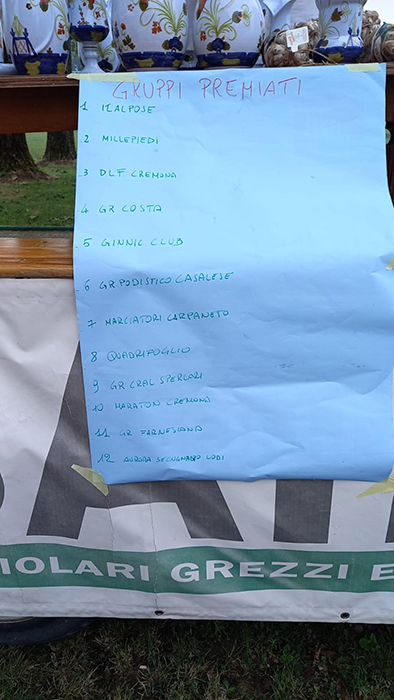 GRUPPI PREMIATI
1 ITALPOSE
2 MILLEPIEDI
3 DLF CREMONA
4 GR COSTA
5 GINNIC CLUB
6 GR PODISTICO CASALESE
7 MARCIATORI CARPANETO
8 QUADRIFOGLIO
9 GR CRAL SPERLARI
10 MARATON CREMONA
11 GR FARNESIANO
12 AURORA LODI
IOLARI GREZZI E